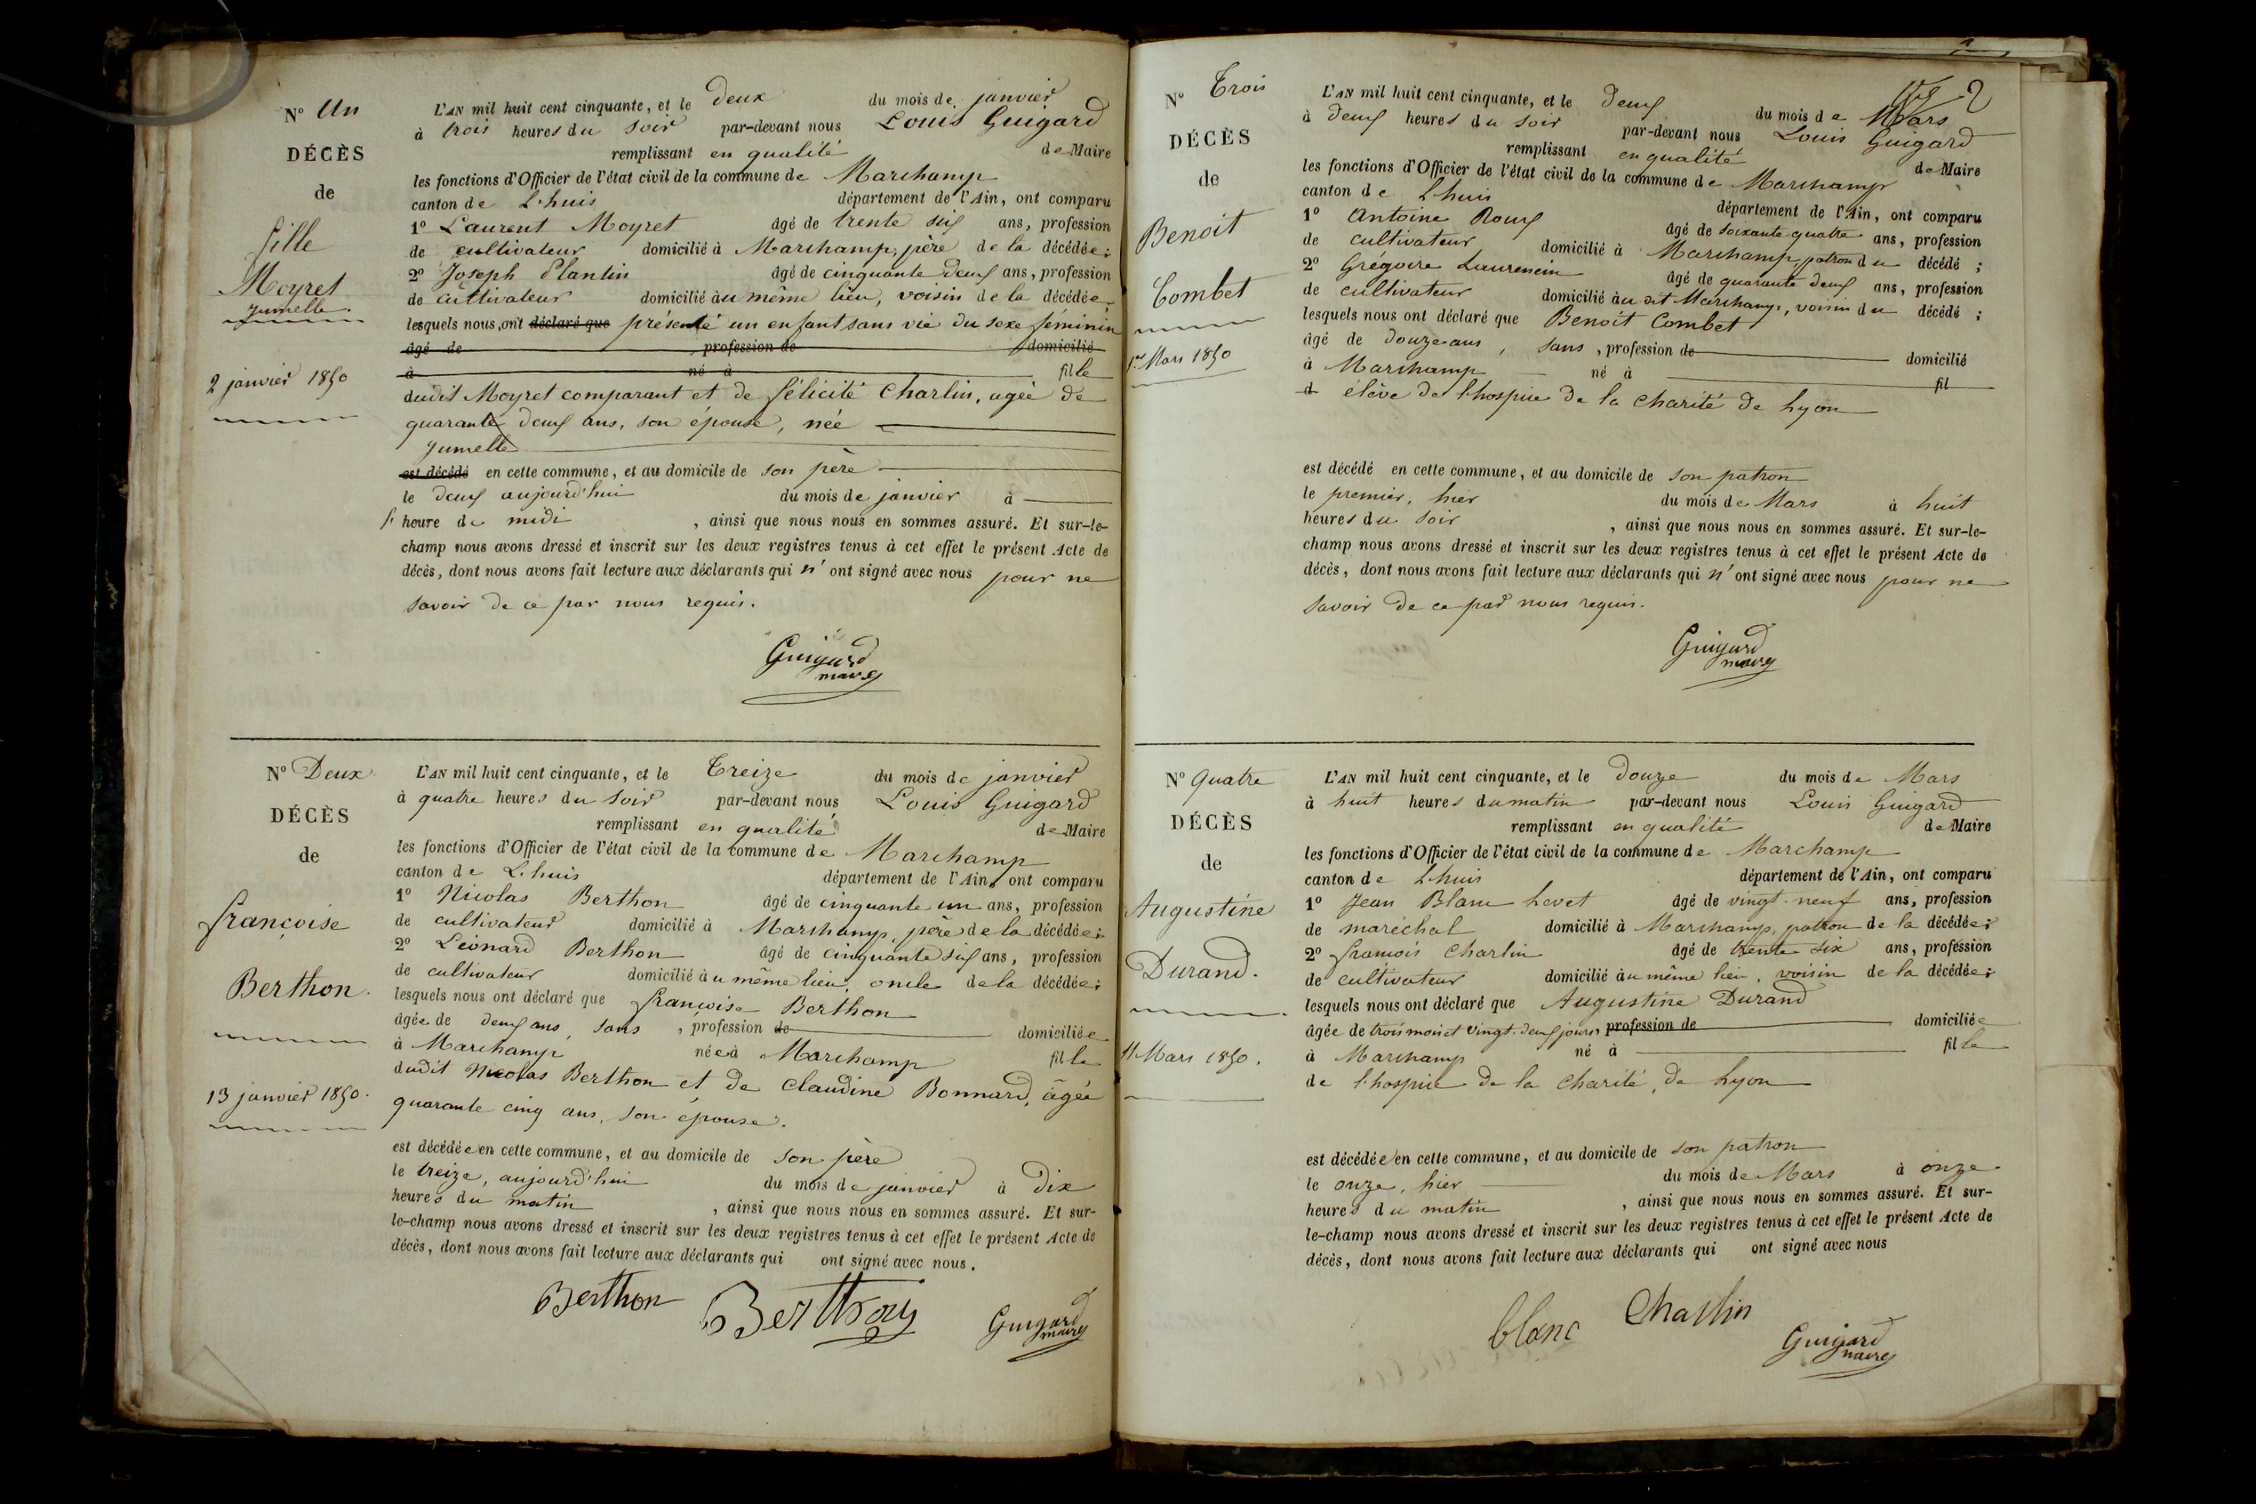 N° Un
DÉCÈS
de
fille
Moyret
jumelle.
2 janvier 1850
L'AN mil huit cent cinquante, et le deux du mois de janvier
à trois heures du soir par-devant nous Louis Guigard
remplissant en qualité de Maire
les fonctions d'Officier de l'état civil de la commune de Marchamp
canton de L'huis département de l'Ain, ont comparu
1° Laurent Moyret âgé de trente six ans, profession
de cultivateur domicilié à Marchamp, père de la décédée;
2° Joseph Plantin âgé de cinquante deux ans, profession
de cultivateur domicilié au même lieu, voisin de la décédée;
lesquels nous ont déclaré que présenté un enfant sans vie du sexe féminin
âgé de profession de domicilié
à né à fille
dudit Moyret comparant et de félicité Charlin, agée de
quarante deux ans, son épouse, née
jumelle
est décédé en cette commune, et au domicile de son père
le deux aujourd'hui du mois de janvier à
heure de midi , ainsi que nous nous en sommes assuré. Et sur-le-
champ nous avons dressé et inscrit sur les deux registres tenus à cet effet le présent Acte de
décès, dont nous avons fait lecture aux déclarants qui n'ont signé avec nous pour ne
savoir de ce par nous requis.
Guigard
maire
N° Deux
DÉCÈS
de
françoise
Berthon.
13 janvier 1850.
L'AN mil huit cent cinquante, et le Treize du mois de janvier
à quatre heures du soir par-devant nous Louis Guigard
remplissant en qualité de Maire
les fonctions d'Officier de l'état civil de la commune de Marchamp
canton de L'huis département de l'Ain, ont comparu
1° Nicolas Berthon âgé de cinquante un ans, profession
de cultivateur domicilié à Marchamp, père de la décédée;
2° Léonard Berthon âgé de cinquante six ans, profession
de cultivateur domicilié au même lieu, oncle de la décédée;
lesquels nous ont déclaré que françoise Berthon
âgée de deux ans, sans , profession de domiciliée
à Marchamp née à Marchamp fille
dudit Nicolas Berthon et de Claudine Bonnard, âgée
quarante cinq ans, son épouse.
est décédée en cette commune, et au domicile de son père
le treize, aujourd'hui du mois de janvier à dix
heures du matin , ainsi que nous nous en sommes assuré. Et sur-
le-champ nous avons dressé et inscrit sur les deux registres tenus à cet effet le présent Acte de
décès, dont nous avons fait lecture aux déclarants qui ont signé avec nous.
Berthon Berthon Guigard
maire
N° Trois
DÉCÈS
de
Benoit
Combet
1er Mars 1850
2
L'AN mil huit cent cinquante, et le deux du mois de Mars
à deux heures du soir par-devant nous Louis Guigard
remplissant en qualité de Maire
les fonctions d'Officier de l'état civil de la commune de Marchamp
canton de L'huis département de l'Ain, ont comparu
1° Antoine Roux âgé de soixante-quatre ans, profession
de cultivateur domicilié à Marchamp, patron du décédé ;
2° Grégoire Laurencin âgé de quarante deux ans, profession
de cultivateur domicilié au dit Marchamp, voisin du décédé ;
lesquels nous ont déclaré que Benoit Combet
âgé de douze ans, sans , profession de domicilié
à Marchamp né à fil
d élève de l'hospice de la charité de Lyon
est décédé en cette commune, et au domicile de son patron
le premier, hier du mois de Mars à huit
heures du soir , ainsi que nous nous en sommes assuré. Et sur-le-
champ nous avons dressé et inscrit sur les deux registres tenus à cet effet le présent Acte de
décès, dont nous avons fait lecture aux déclarants qui n'ont signé avec nous pour ne
savoir de ce par nous requis.
Guigard
maire
N° Quatre
DÉCÈS
de
Augustine
Durand.
11 Mars 1850.
L'AN mil huit cent cinquante, et le douze du mois de Mars
à huit heures du matin par-devant nous Louis Guigard
remplissant en qualité de Maire
les fonctions d'Officier de l'état civil de la commune de Marchamp
canton de L'huis département de l'Ain, ont comparu
1° Jean Blanc Levet âgé de vingt-neuf ans, profession
de maréchal domicilié à Marchamp, patron de la décédée;
2° françois Charlin âgé de trente six ans, profession
de cultivateur domicilié au même lieu, voisin de la décédée;
lesquels nous ont déclaré que Augustine Durand
âgée de trois mois et vingt-deux jours, profession de domiciliée
à Marchamp né à fille
de l'hospice de la charité, de Lyon
est décédée en cette commune, et au domicile de son patron
le onze, hier du mois de Mars à onze
heures du matin , ainsi que nous nous en sommes assuré. Et sur-
le-champ nous avons dressé et inscrit sur les deux registres tenus à cet effet le présent Acte de
décès, dont nous avons fait lecture aux déclarants qui ont signé avec nous
blanc Charlin Guigard
maire